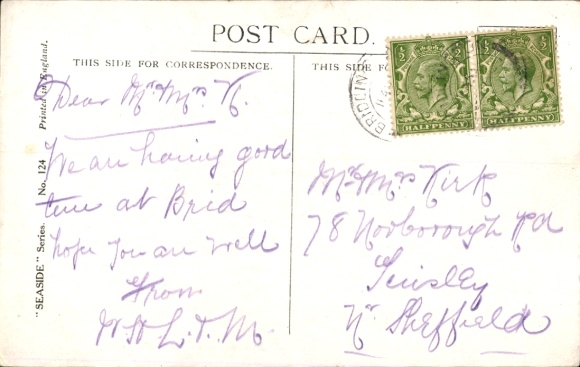 POST CARD.
THIS SIDE FOR CORRESPONDENCE.
THIS SIDE FO
Printed in England.
No. 124
"SEASIDE" Series.
½ ½
HALFPENNY
½ ½
HALFPENNY
BRIDLIN
Dear Mr Mrs K.
We are having good
time at Brid
hope you are well
From
L. T. M.
Mr Mrs Kirk
78 Norborough Rd
Tinsley
Nr Sheffield